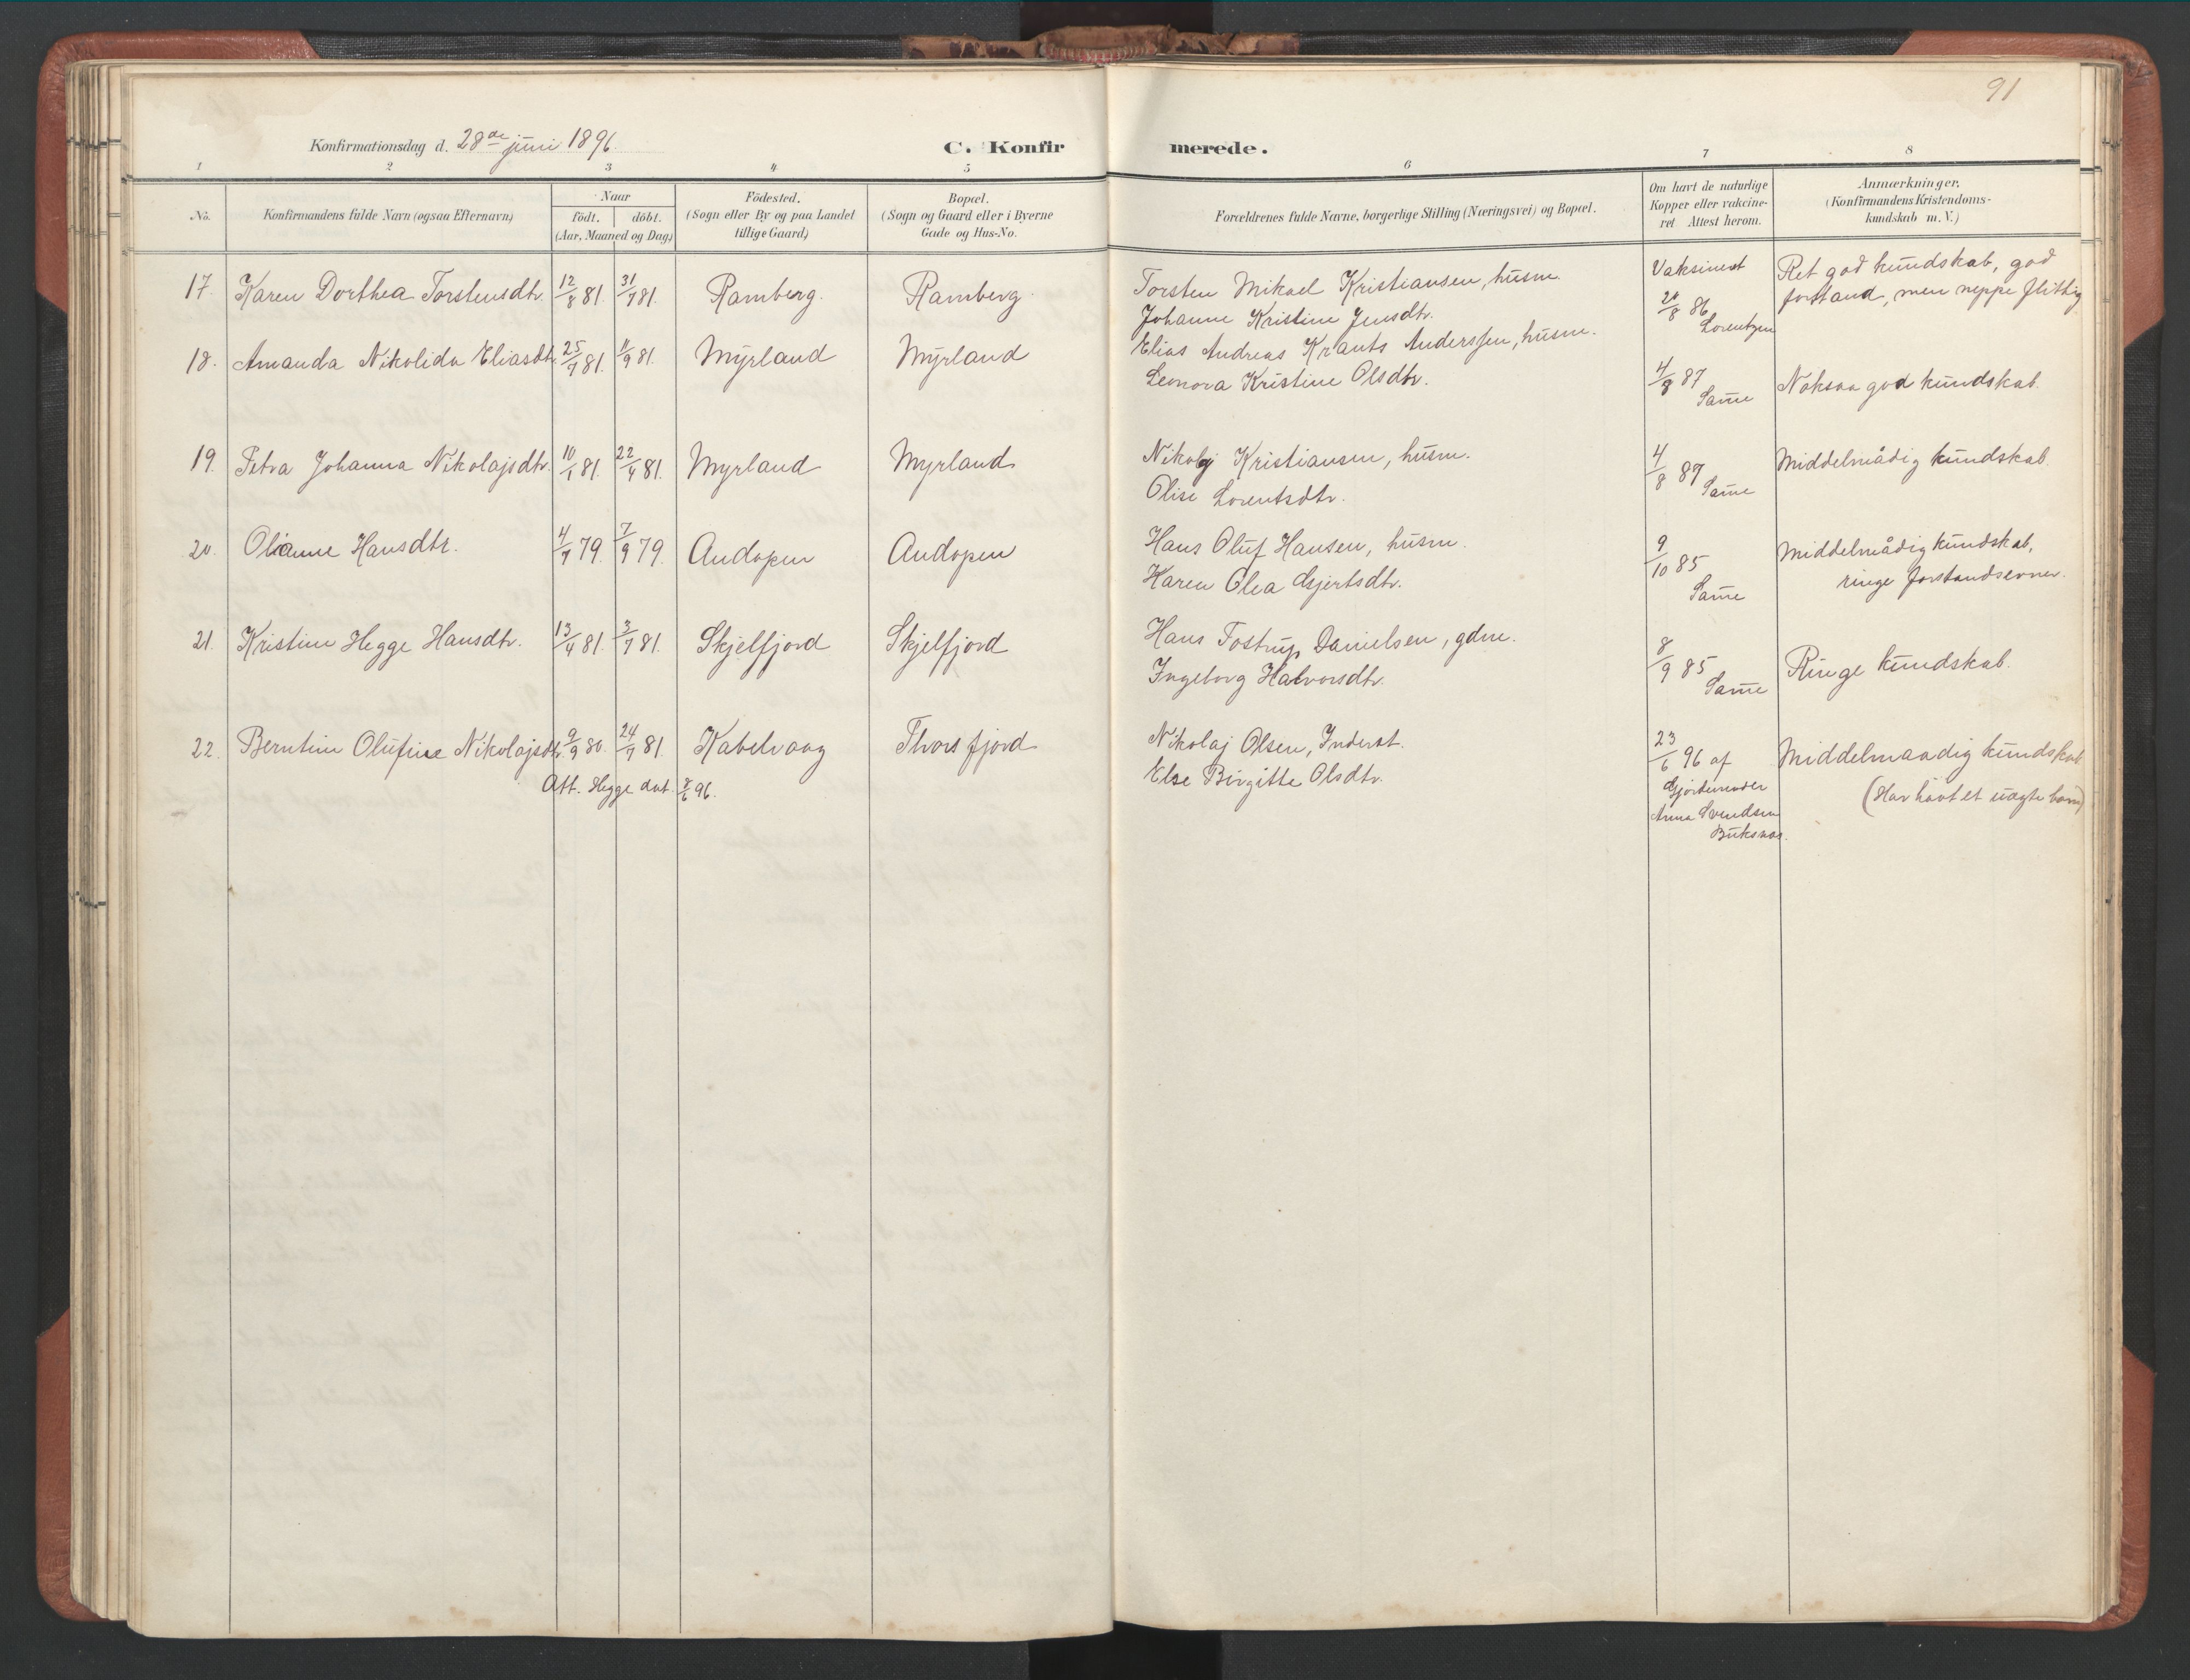 91
Konfirmationsdag d. 28de juni 1896.
C. Konfirmerede.
1 2 3 4 5 6 7 8
No. Konfirmandens fulde Navn (ogsaa Efternavn) Naar födt. döbt. (Aar, Maaned og Dag) Födested. (Sogn eller By og paa Landet tillige Gaard) Bopæl. (Sogn og Gaard eller i Byerne Gade og Hus-No. Forældrenes fulde Navne, borgerlige Stilling (Næringsvei) og Bopæl. Om havt de naturlige Kopper eller vakcineret Attest herom. Anmærkninger. (Konfirmandens Kristendomskundskab m. V.)
17. Karen Dorthea Torstensdtr. 12/8 81. 31/7 81. Ramberg. Ramberg. Torsten Mikael Kristiansen, husm. Vaksinert Ret god kundskab, god
Johanne Kristine Jensdtr. 20/8 86 Lorentzen forstand, men neppe flittig
18. Amanda Nikolida Eliasdtr. 25/7 81. 11/9 81. Myrland Myrland Elias Andreas Krants Anderssen, husm.
Leonora Kristine Olsdtr. 4/8 87 Samme Noksaa god kundskab.
19. Petra Johanna Nikolajsdtr. 10/1 81. 22/4 81. Myrland Myrland Nikolaj Kristiansen, husm. 4/8 87 Samme Middelmådig kundskab.
Olise Lorentsdtr.
20. Olianne Hansdtr. 4/7 79. 7/9 79. Andopen Andopen Hans Oluf Hansen, husm. 9/10 85 Samme Middelmådig kundskab,
Karen Olea Gjertsdtr. ringe forstandsevner.
21. Kristine Hegge Hansdtr. 13/4 81. 3/7 81. Skjelfjord Skjelfjord Hans Tostrup Danielsen, gdm. 8/9 85 Samme Ringe kundskab.
Ingeborg Halvorsdtr.
22. Berntine Olufine Nikolajsdtr. 9/9 80. 24/7 81. Kabelvaag Thorsfjord Nikolaj Olsen, Inderst. 23/6 96 af Middelmaadig kundskab
Att. Hegge dat. 8/6 96. Else Birgitte Olsdtr. Gjordemoder (Har havt et uægte barn)
Anna Svendsen
Buksnæs.